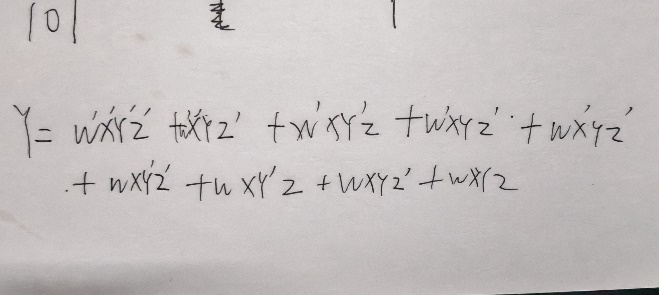 101 1
Y = w'x'y'z' + w'x'yz' + w'xy'z + w'xyz' + wx'yz'
+ wxy'z' + wxy'z + wxyz' + wxyz